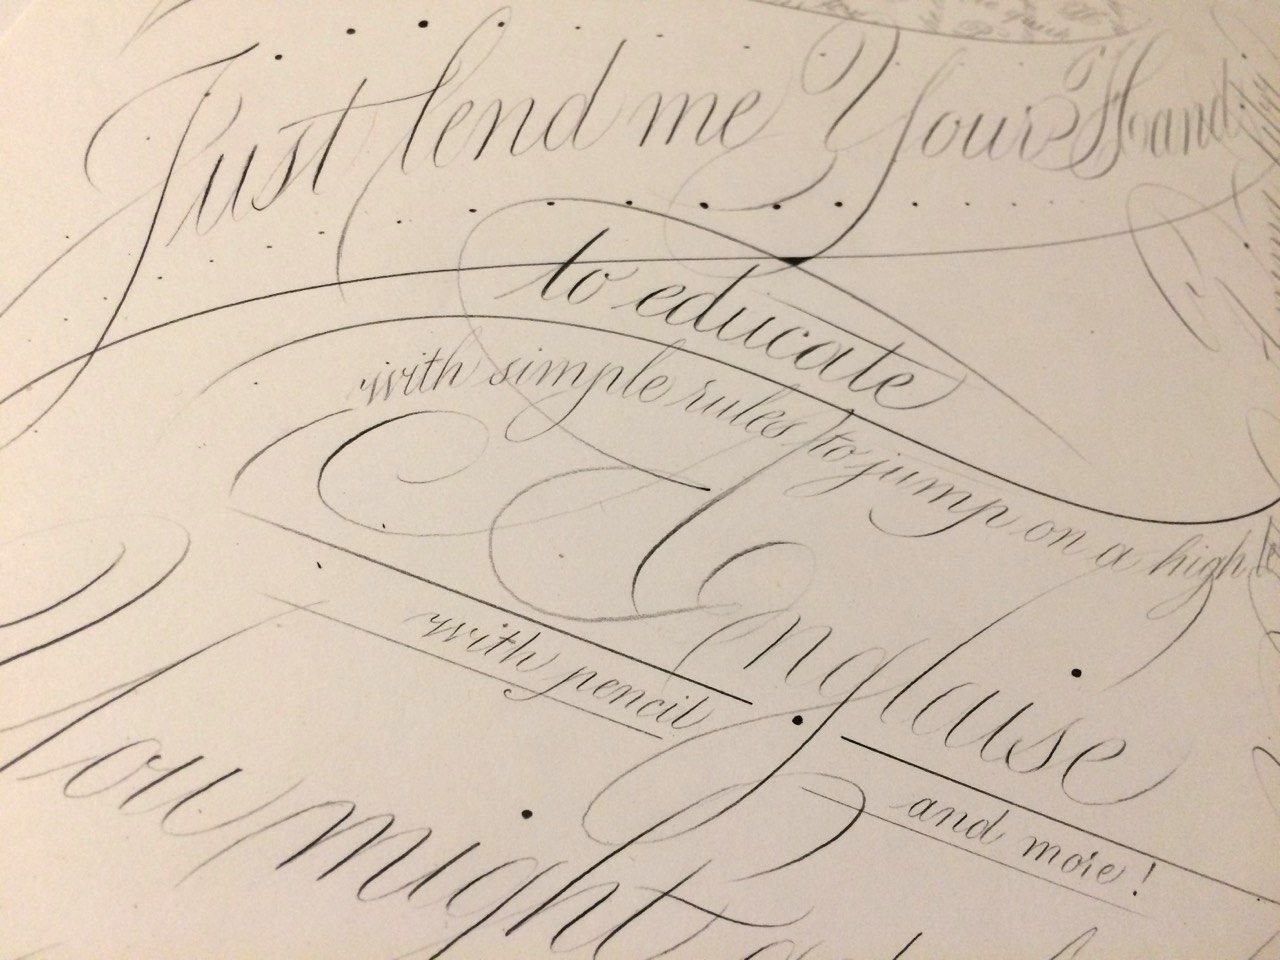 Just lend me Your Hand
to educate
with simple rules to jump on a high
Anglaise
with pencil
and more!
You might